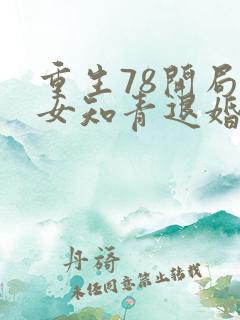 重生78开局
女知青退婚
丹诗
未经同意禁止转载